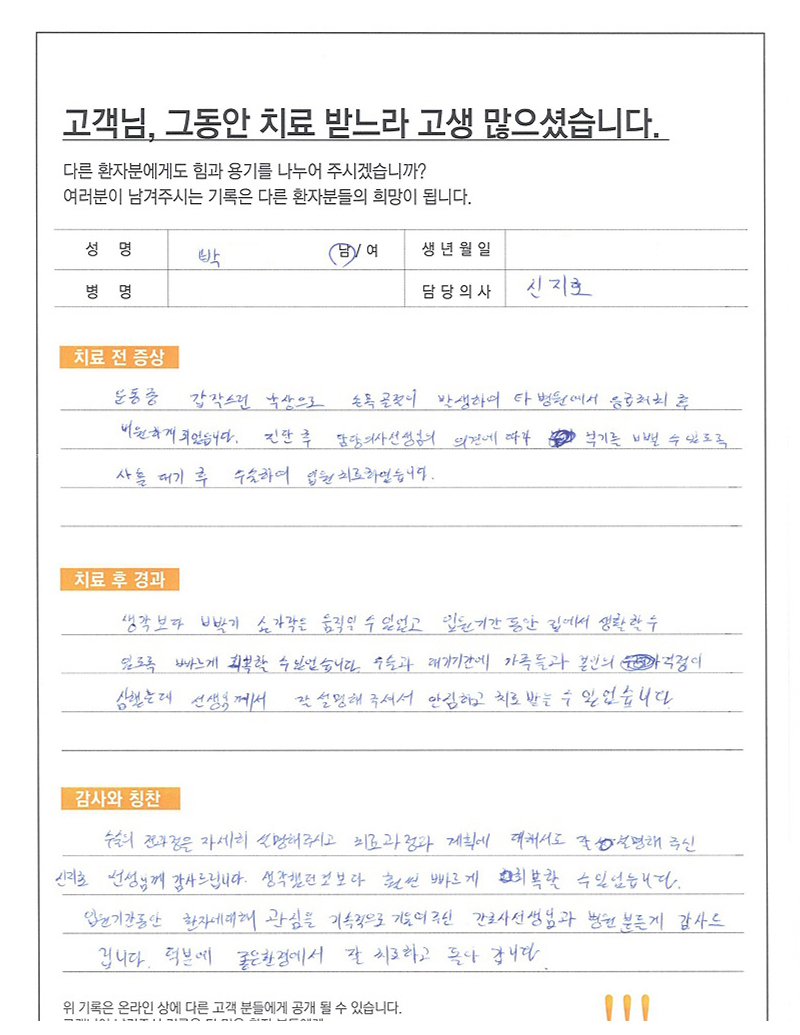 고객님, 그동안 치료 받느라 고생 많으셨습니다.
다른 환자분에게도 힘과 용기를 나누어 주시겠습니까?
여러분이 남겨주시는 기록은 다른 환자분들의 희망이 됩니다.
성 명 박 남/여 생년월일
병 명 담당의사 신지호
치료 전 증상
운동중 갑작스런 낙상으로 손목골절이 발생하여 타병원에서 응급처치 후
내원하게 되었습니다. 진단 후 담당의사선생님의 의견에 따라 붓기를 빼낼 수 있도록
사흘 대기 후 수술하여 입원치료하였습니다.
치료 후 경과
생각보다 빨리 손가락은 움직일 수 있었고 입원기간 동안 집에서 생활할 수
있도록 빠르게 회복할 수 있었습니다. 수술과 대기기간에 가족들과 본인의 걱정이
심했는데 선생님께서 잘 설명해 주셔서 안심하고 치료 받을 수 있었습니다
감사와 칭찬
수술의 전과정을 자세히 설명해주시고 치료과정과 계획에 대해서도 잘 설명해 주신
신지호 선생님께 감사드립니다. 생각했던것보다 훨씬 빠르게 회복할 수있었습니다.
입원기간동안 환자에대해 관심을 지속적으로 기울여주신 간호사선생님과 병원 분들께 감사드
립니다. 덕분에 좋은환경에서 잘 치료하고 돌아 갑니다
위 기록은 온라인 상에 다른 고객 분들에게 공개 될 수 있습니다.
!!!